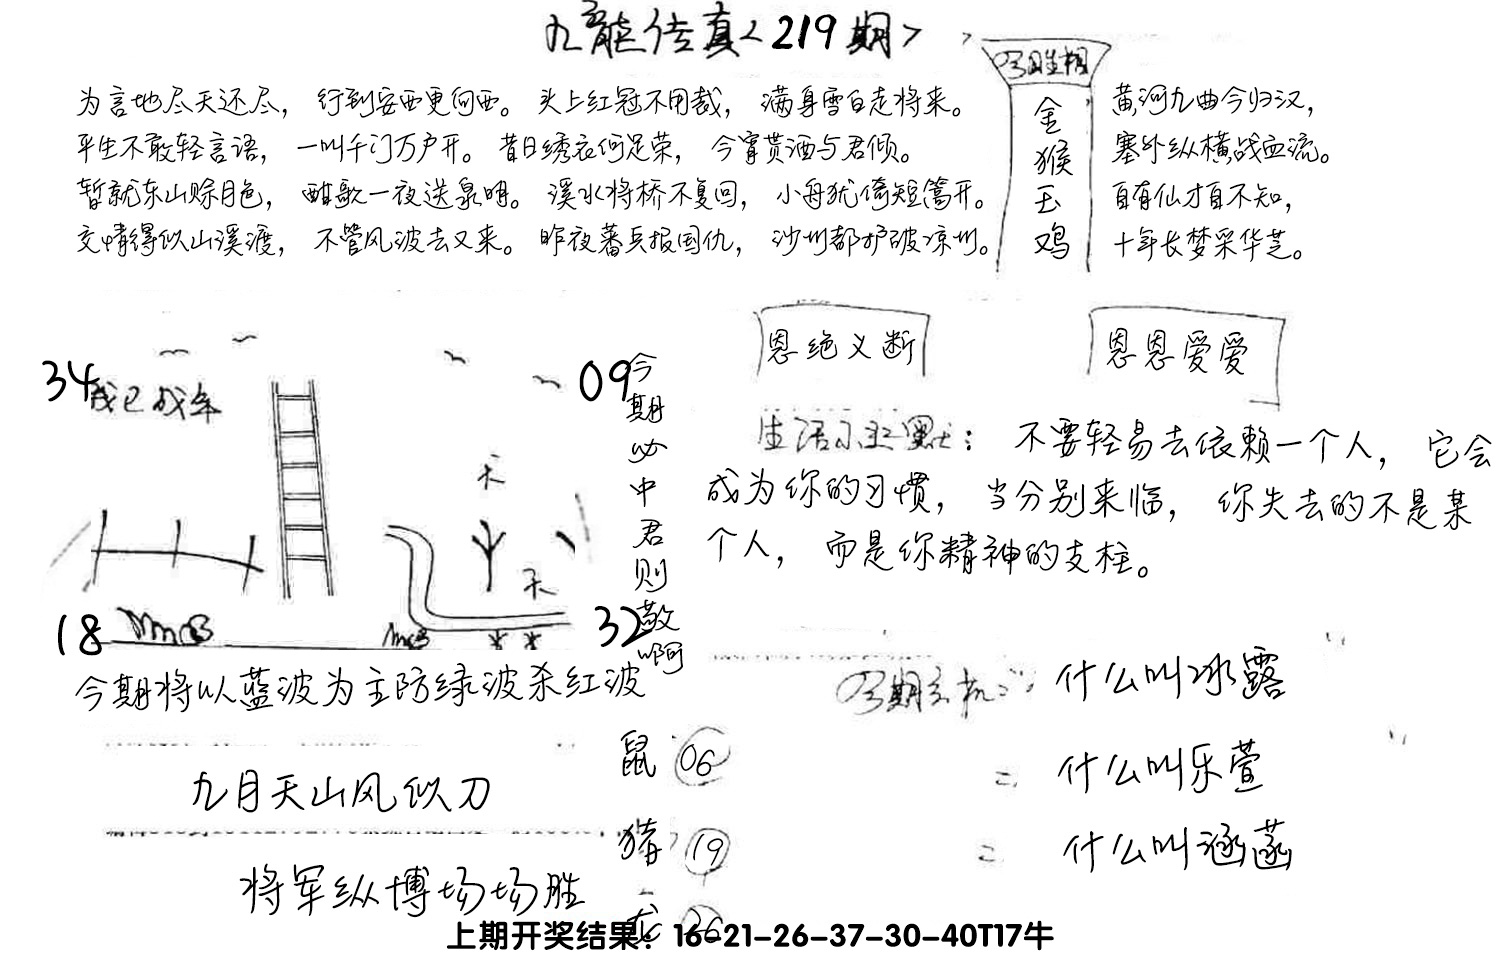 九龍传真<219期>
为言地尽天还尽，行到安西更向西。头上红冠不用裁，满身雪白走将来。
平生不敢轻言语，一叫千门万户开。昔日绣衣何足荣，今宵贳酒与君倾。
暂就东山赊月色，酣歌一夜送泉明。溪水将桥不复回，小舟犹倚短篙开。
交情得似山溪渡，不管风波去又来。昨夜蕃兵报国仇，沙州都护破凉州。
金
猴
玉
鸡
黄河九曲今归汉，
塞外纵横战血流。
自有仙才自不知，
十年长梦采华芝。
34
09
18
32
今期必中君则敬啊
今期将以蓝波为主防绿波杀红波
恩绝义断
恩恩爱爱
不要轻易去依赖一个人，它会
成为你的习惯，当分别来临，你失去的不是某
个人，而是你精神的支柱。
什么叫冰露
什么叫乐萱
什么叫涵菡
九月天山风似刀
将军纵博场场胜
鼠 06
猪 19
龙 26
上期开奖结果：16-21-26-37-30-40T17牛